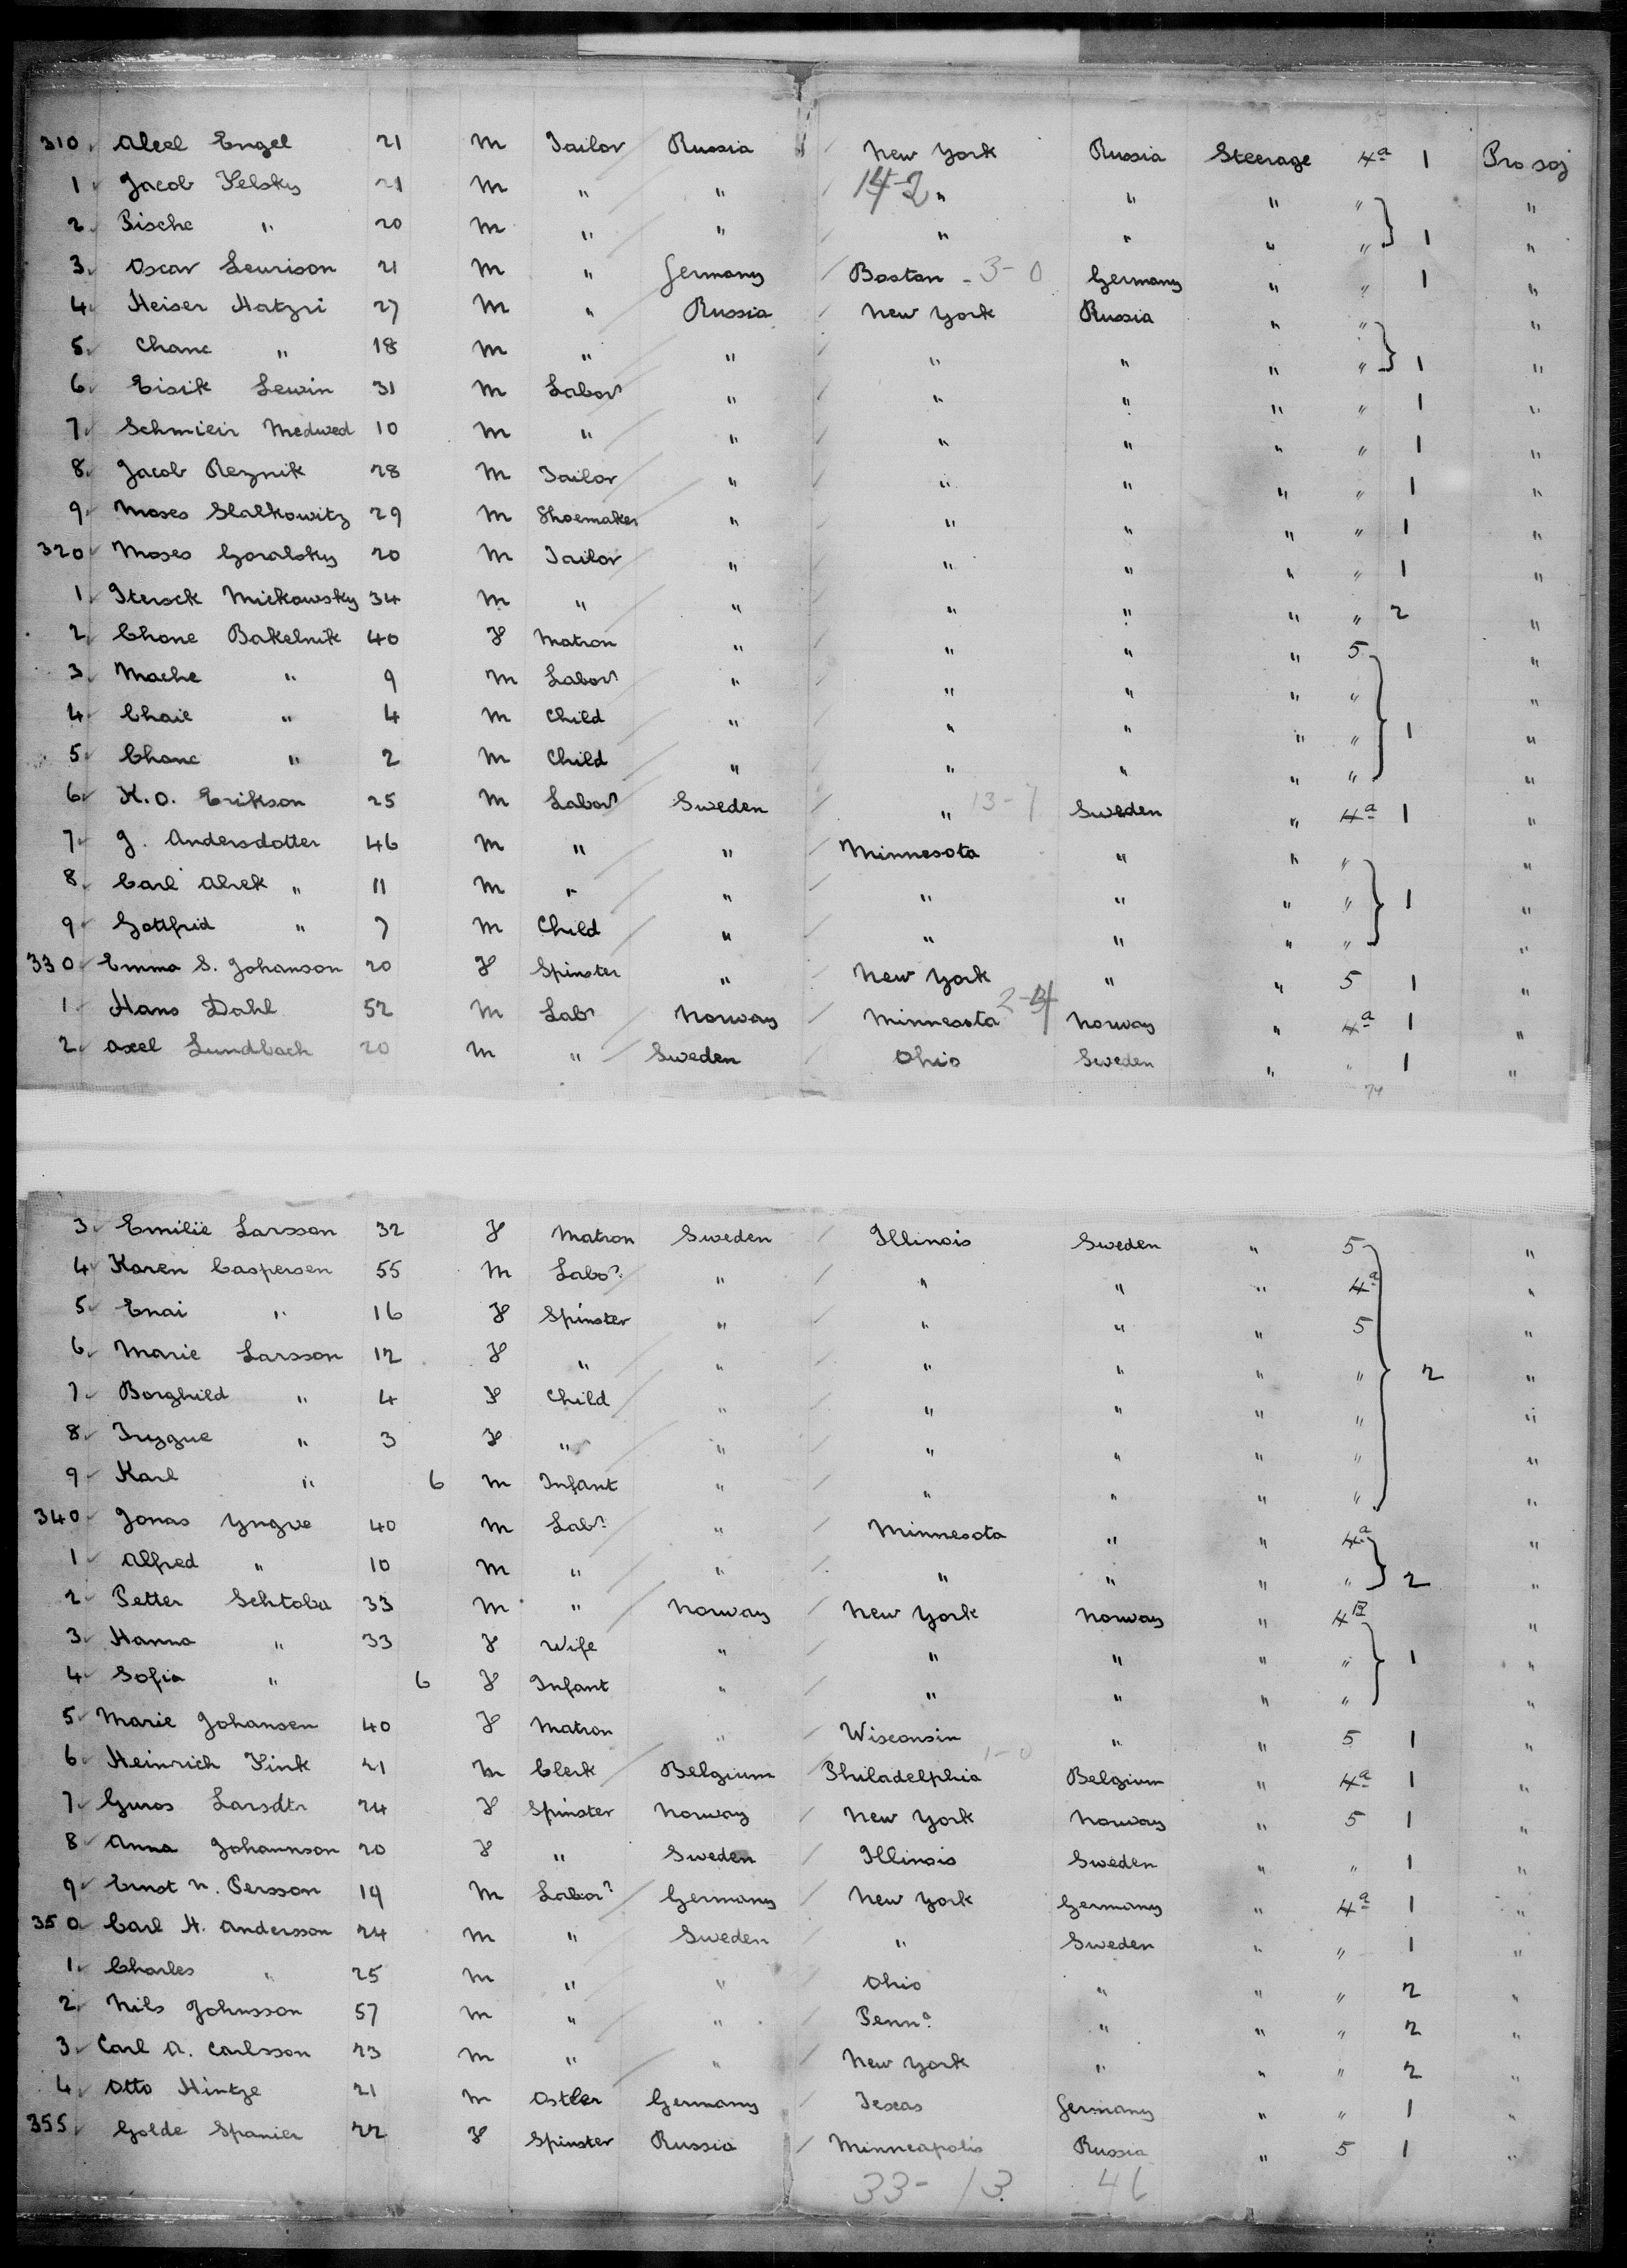 310 Abel Engel 21 M Tailor Russia New York Russia Steerage 4a 1 Pro soj
1 Jacob Felsky 21 M " " 14-2 " " " " "
2 Pische " 20 M " " " " " " 1 "
3 Oscar Leurison 21 M " Germany Boston - 3-0 Germany " " 1 "
4 Heiser Hatzri 27 M " Russia New York Russia " " "
5 Chane " 18 M " " " " " " 1 "
6 Eisik Lewin 31 M Labor " " " " " 1 "
7 Schmieir Medwed 10 M " " " " " " 1 "
8 Jacob Reznik 28 M Tailor " " " " " 1 "
9 Moses Slalkowitz 29 M Shoemaker " " " " " 1 "
320 Moses Goralsky 20 M Tailor " " " " " 1 "
1 Iterock Mickowsky 34 M " " " " " " 2 "
2 Chone Bakelnik 40 F Matron " " " " 5 "
3 Mache " 9 M Labor " " " " " "
4 Chaie " 4 M Child " " " " " 1 "
5 Chane " 2 M Child " " " " " "
6 K.O. Erikson 25 M Labor Sweden " 13-7 Sweden " 4a 1 "
7 J. Andersdotter 46 M " " Minnesota " " " "
8 Carl Alrek " 11 M " " " " " " 1 "
9 Gottfrid " 7 M Child " " " " " "
330 Emma S. Johanson 20 F Spinster " New York " " 5 1 "
1 Hans Dahl 52 M Labr Norway Minnesota Norway " 4a 1 "
2 Axel Lundbach 20 M " Sweden Ohio Sweden " " 1 "
74
3 Emilie Larsson 32 F Matron Sweden Illinois Sweden " 5 "
4 Karen Caspersen 55 M Labor " " " " 4a "
5 Enai " 16 F Spinster " " " " 5 "
6 Marie Larsson 12 F " " " " " " 2 "
7 Borghild " 4 F Child " " " " " "
8 Trygve " 3 F " " " " " " "
9 Karl " 6 M Infant " " " " " "
340 Jonas Yngve 40 M Labr " Minnesota " " 4a "
1 Alfred " 10 M " " " " " " 2 "
2 Petter Sehtoba 33 M " Norway New York Norway " 4B "
3 Hanna " 33 F Wife " " " " " 1 "
4 Sofia " 6 F Infant " " " " " "
5 Marie Johansen 40 F Matron " Wisconsin " " 5 1 "
6 Heinrich Fink 21 M Clerk Belgium Philadelphia 1-0 Belgium " 4a 1 "
7 Guros Larsdtr 24 F Spinster Norway New York Norway " 5 1 "
8 Anna Johannson 20 F " Sweden Illinois Sweden " " 1 "
9 Ernst N. Persson 19 M Labor Germany New York Germany " 4a 1 "
350 Carl H. Andersson 24 M " Sweden " Sweden " " 1 "
1 Charles " 25 M " " Ohio " " " 2 "
2 Nils Johnsson 57 M " " Penna " " " 2 "
3 Carl A. Carlsson 23 M " " New York " " " 2 "
4 Otto Hintze 21 M Ostler Germany Texas Germany " " 1 "
355 Golde Spanier 22 F Spinster Russia Minneapolis Russia " 5 1 "
33-13 46